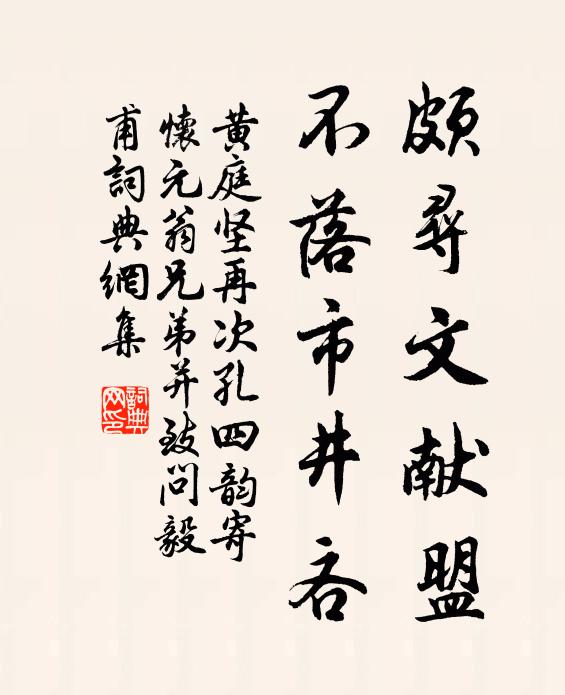 颇尋文献盟
不落市井吝
黄庭坚再次孔四韵寄
懷元翁兄弟并致問毅
甫詞典網集
詞典网印